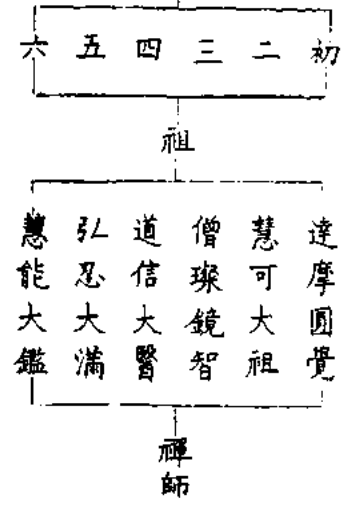 初 二 三 四 五 六
祖
達摩圓覺
慧可大祖
僧璨鏡智
道信大醫
弘忍大滿
慧能大鑑
禪師